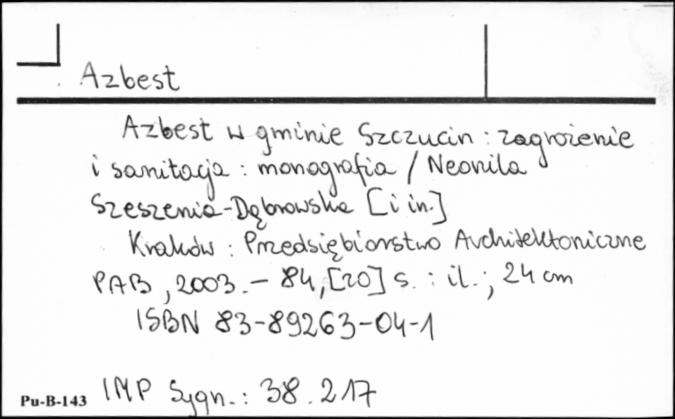 Azbest
Azbest w gminie Szczucin : zagrożenie
i sanitacja : monografia / Neonila
Szeszenia-Dąbrowska [i in.]
Kraków : Przedsiębiorstwo Architektoniczne
PAB, 2003. - 84, [20] s. : il. ; 24 cm
ISBN 83-89263-04-1
Pu-B-143 IMP Sygn.: 38.217